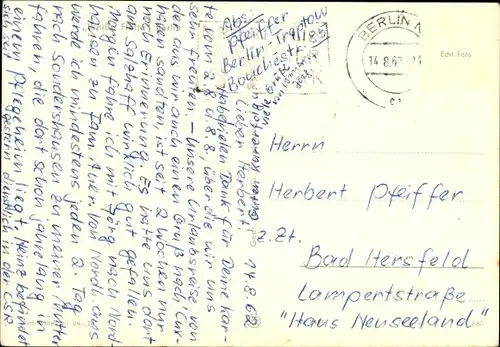 Abs:
Pfeiffer
Berlin-Treptow
Bouchéstr.
BERLIN
14.8.62
Echt Foto
14.8.62
Lieber Herbert!
Habe vielen Dank für Deine Kar-
te vom 2. u. 8. 8., über die wir uns
sehr freuten. – Unsere Urlaubsreise, von
der aus wir auch einen Gruß nach
sandten, ist seit 2 Wochen nur
noch Erinnerung. Es hatte uns dort
am Salzhaff wirklich gut gefallen.
Morgen fahre ich mit Jörg nach Nord-
hausen zu Fam. Auer. Von Nordh. aus
werde ich mindestens jeden 2. Tag
nach Sondershausen zu meiner Mutter
fahren, die dort schon jahrelang in
einem Pflegeheim liegt. Heinz befindet
sich seit gestern dienstlich in der CSR
Herrn
Herbert Pfeiffer
z. Zt.
Bad Hersfeld
Lampertstraße
"Haus Neuseeland"